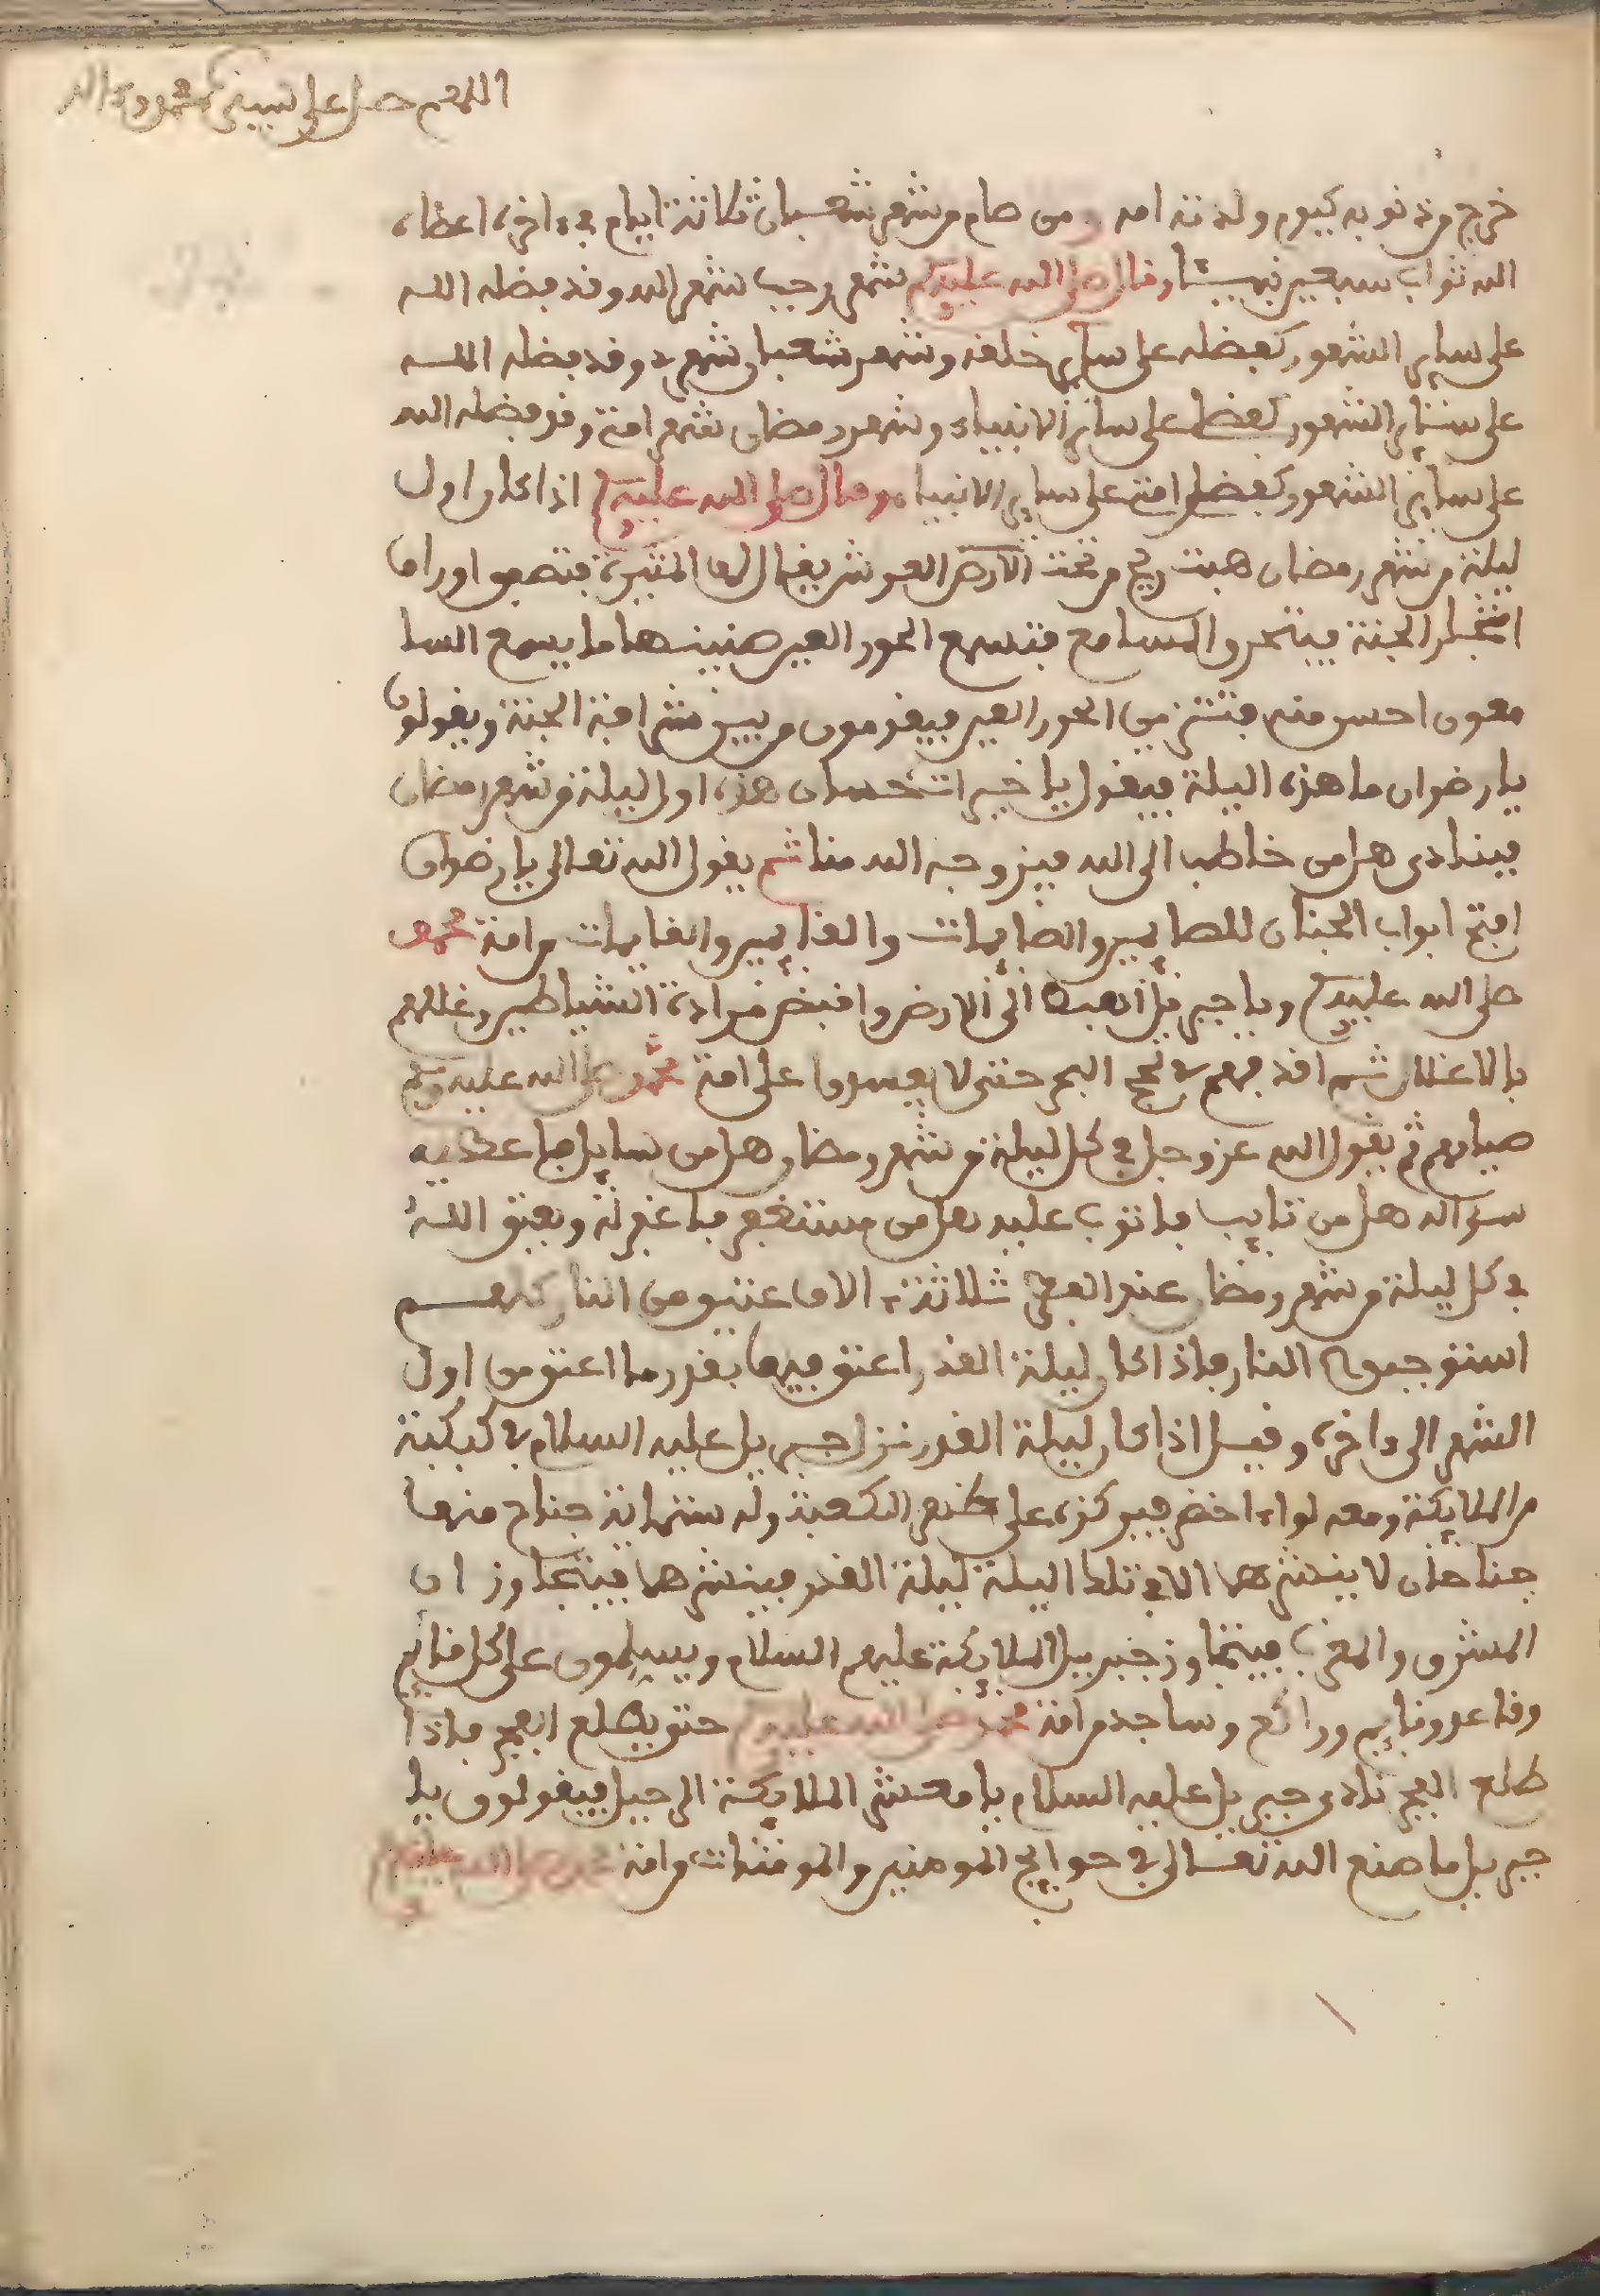 اللهم صل على نبينا محمد واله
خرج من ذنوبه كيوم ولدته امه ومن صام من شهر شعبان ثلاثة ايام في ءاخره اعطاه
الله ثواب سبعين نبيئا وقال صلى الله عليه وسلم شهر رجب شهر الله وقد فضله الله
على ساير الشهور كفضله على ساير خلقه وشهر شعبان شهري وقد فضله الله
على ساير الشهور كفضلي على ساير الانبياء وشهر رمضان شهر امتي وقد فضله الله
على ساير الشهور كفضل امتي على ساير الانبياء وقال صلى الله عليه وسلم اذا كان اول
ليلة من شهر رمضان هبت ريح من تحت الارض العرش يقال لها المثيرة فتصفق اوراق
اشجار الجنة فيتحرو المسامع فتسمع الحور العين صنينها ما يسمع السا
معون احسن منه فتتزين الحور العين فيقومون من بين شرافة الجنة ويقولون
يا رضوان ما هذه اليلة فيقول يا خيرات حسان هذه اول ليلة من شهر رمضان
فينادى هل من خاطب الى الله فيزوجه الله منا ثم يقول الله تعالى يا رضوان
افتح ابواب الجنان للصايمين والصايمات والقايمين والقايمات من امة محمد
صلى الله عليه وسلم ويا جبريل اهبط الى الارض واقبض مرادة الشياطين وغلهم
بالاغلال ثم اقذفهم في لجج البحر حتى لا يفسدوا على امة محمد صلى الله عليه وسلم
صيامهم ثم يقول الله عز وجل في كل ليلة من شهر رمضان هل من سايل فاعطيه
سؤاله هل من تايب فاتوب عليه هل من مستغفر فاغفر له ويعتق الله
في كل ليلة من شهر رمضان عند الفجر ثلاثة ءالاف عتيق من النار كلهم
استوجبوا النار فاذا كان ليلة القدر اعتق فيها بقدر ما اعتق من اول
الشهر الى ءاخره وقيل اذا كان ليلة القدر نزل جبريل عليه السلام في كبكبة
من الملايكة ومعه لواء اخضر فيركزه على ظهر الكعبة وله ستماية جناح منها
جناحان لا ينشرها الا في تلك اليلة ليلة القدر فينشرها فيتجاوزان
المشرق والمغرب فيتجاوز جبريل الملايكة عليهم السلام ويسلمون على كل قايم
وقاعد ونايم وراكع وساجد من امة محمد صلى الله عليه وسلم حتى يطلع الفجر فاذا
طلع الفجر نادى جبريل عليه السلام يا معشر الملايكة الرحيل فيقولون يا
جبريل ما صنع الله تعالى في حوايج المومنين والمومنات من امة محمد صلى الله عليه وسلم